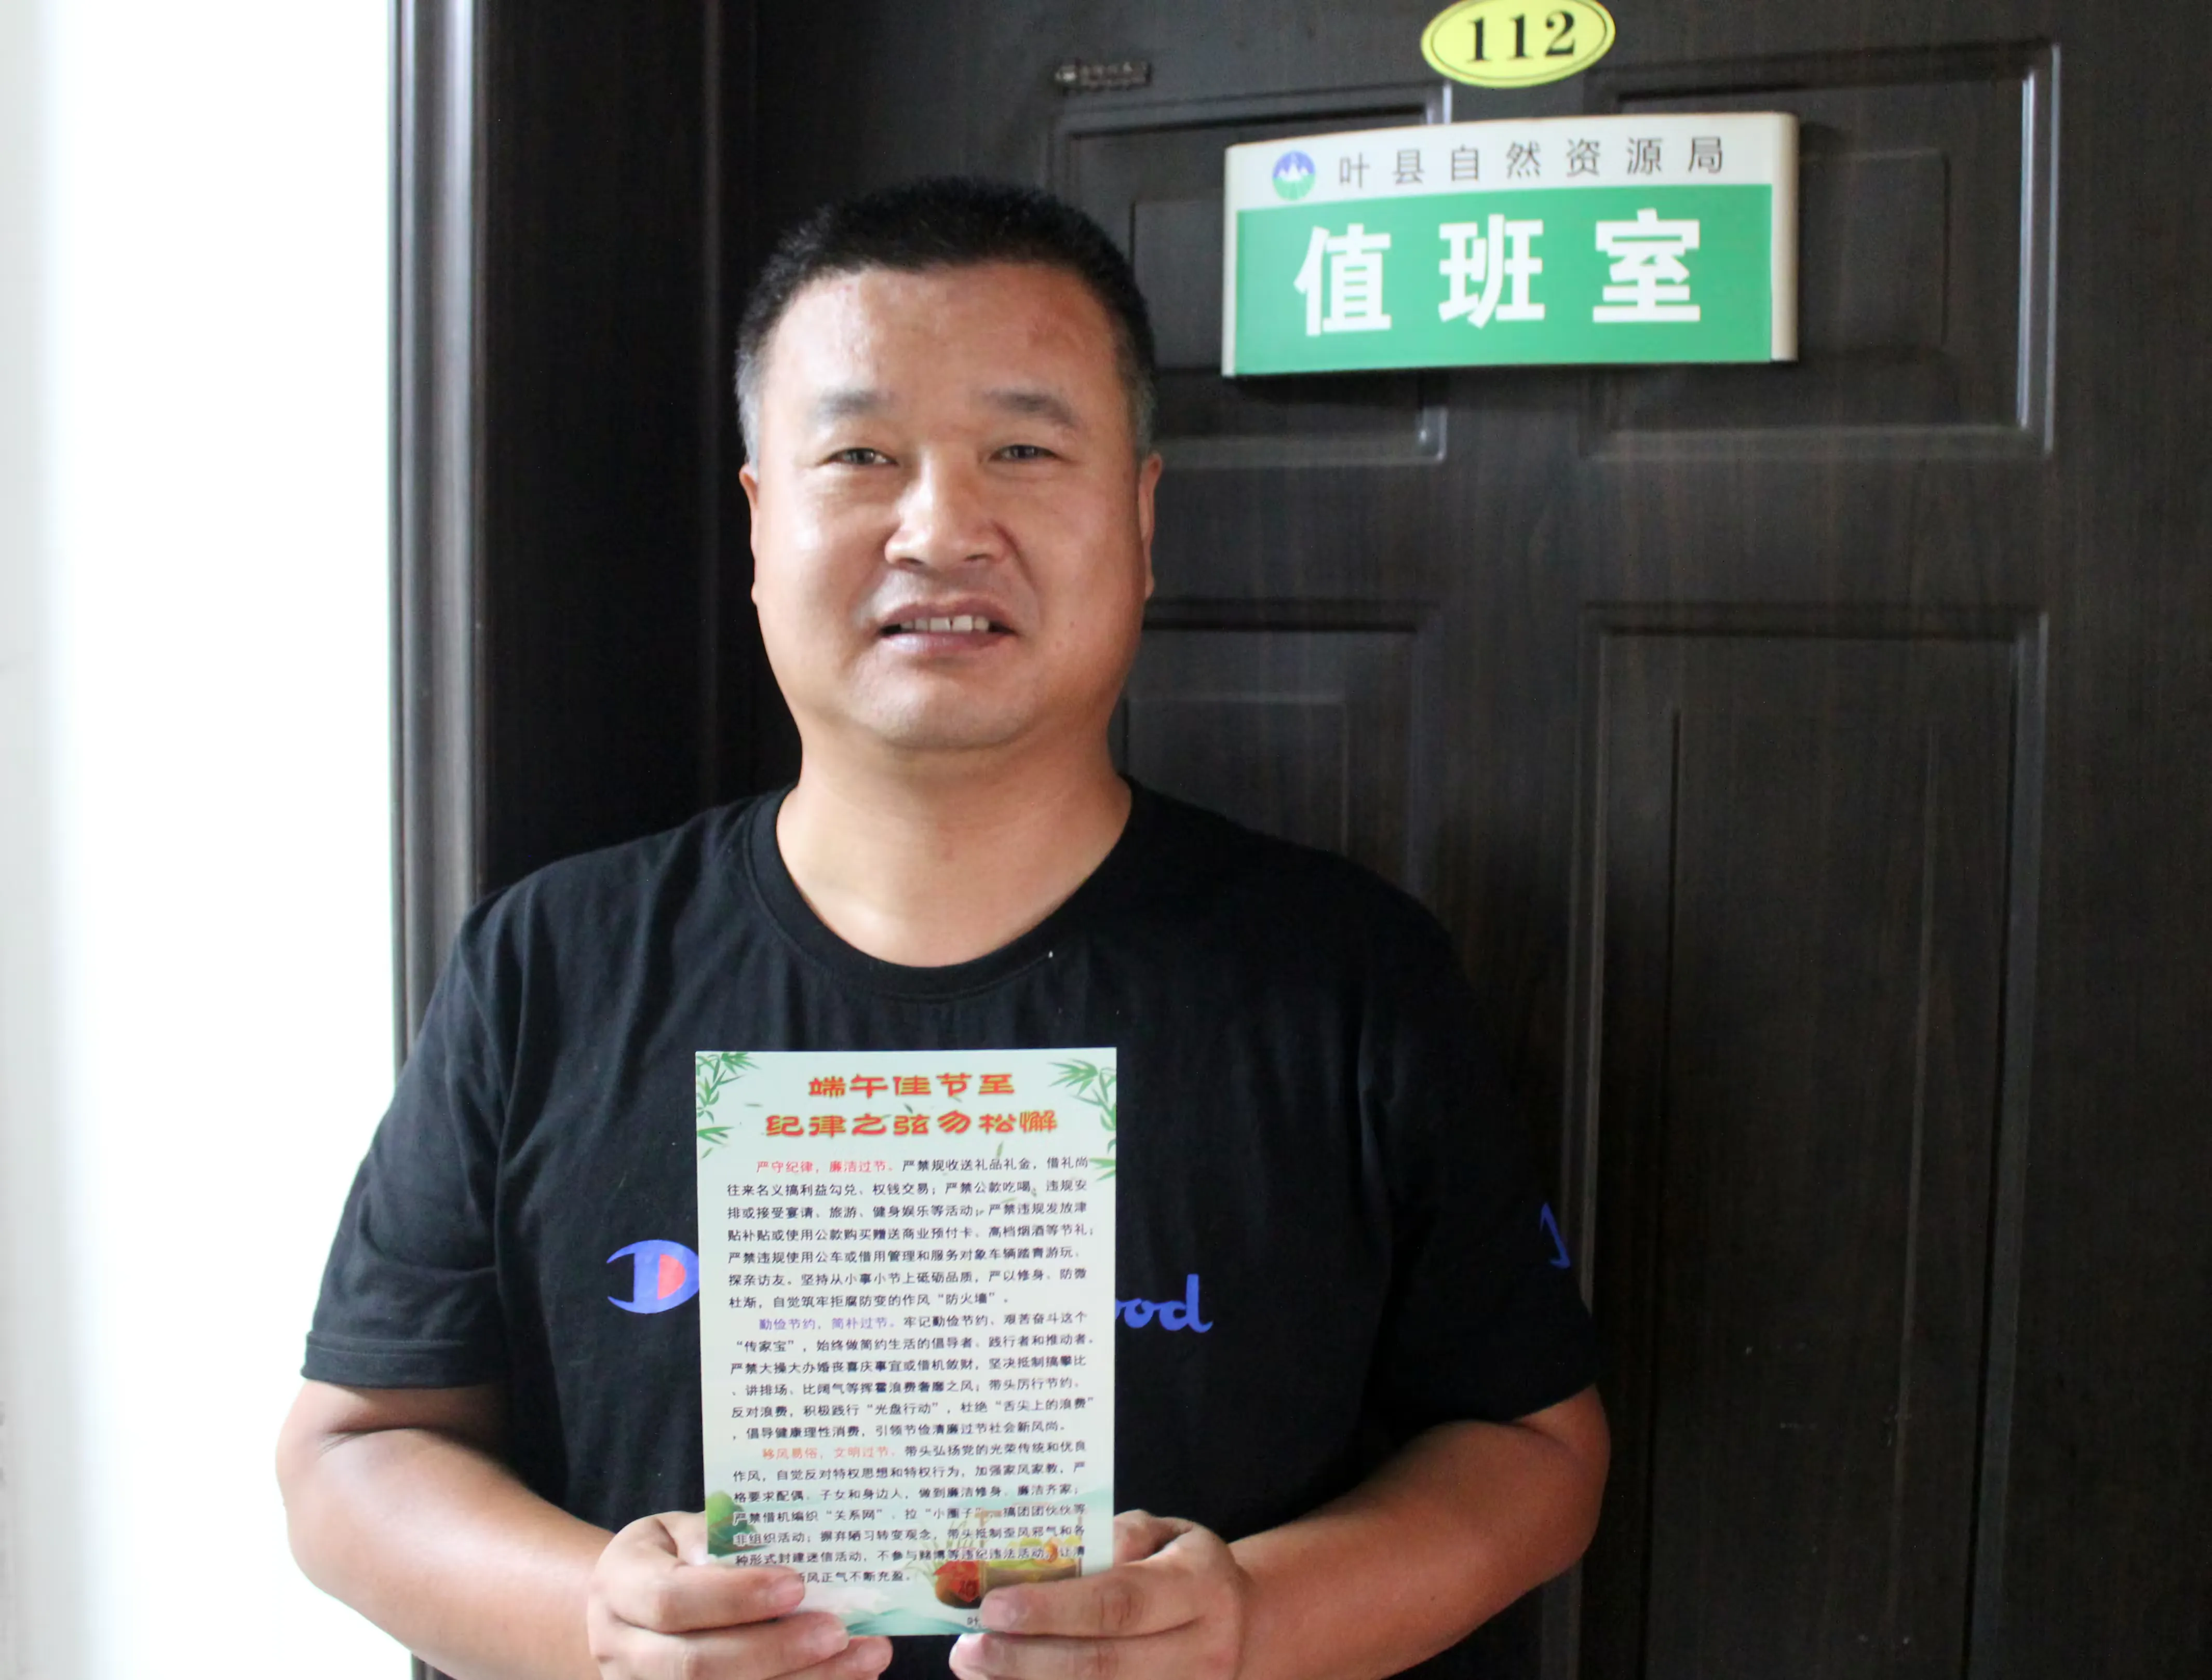 112
叶县自然资源局
值班室
端午佳节至
纪律之弦勿松懈
严守纪律，廉洁过节。严禁规收送礼品礼金，借礼尚
往来名义搞利益勾兑、权钱交易；严禁公款吃喝、违规安
排或接受宴请、旅游、健身娱乐等活动；严禁违规发放津
贴补贴或使用公款购买赠送商业预付卡、高档烟酒等节礼；
严禁违规使用公车或借用管理和服务对象车辆踏青游玩、
探亲访友。坚持从小事小节上砥砺品质，严以修身、防微
杜渐，自觉筑牢拒腐防变的作风“防火墙”。
勤俭节约，简朴过节。牢记勤俭节约、艰苦奋斗这个
“传家宝”，始终做简约生活的倡导者、践行者和推动者。
严禁大操大办婚丧喜庆事宜或借机敛财，坚决抵制搞攀比
、讲排场、比阔气等挥霍浪费奢靡之风；带头厉行节约、
反对浪费，积极践行“光盘行动”，杜绝“舌尖上的浪费”
，倡导健康理性消费，引领节俭清廉过节社会新风尚。
移风易俗，文明过节。带头弘扬党的光荣传统和优良
作风，自觉反对特权思想和特权行为，加强家风家教，严
格要求配偶、子女和身边人，做到廉洁修身、廉洁齐家；
严禁借机编织“关系网”、拉“小圈子”、搞团团伙伙等
非组织活动；摒弃陋习转变观念，带头抵制歪风邪气和各
种形式封建迷信活动，不参与赌博等违纪违法活动，让清
风正气不断充盈。
叶
ood